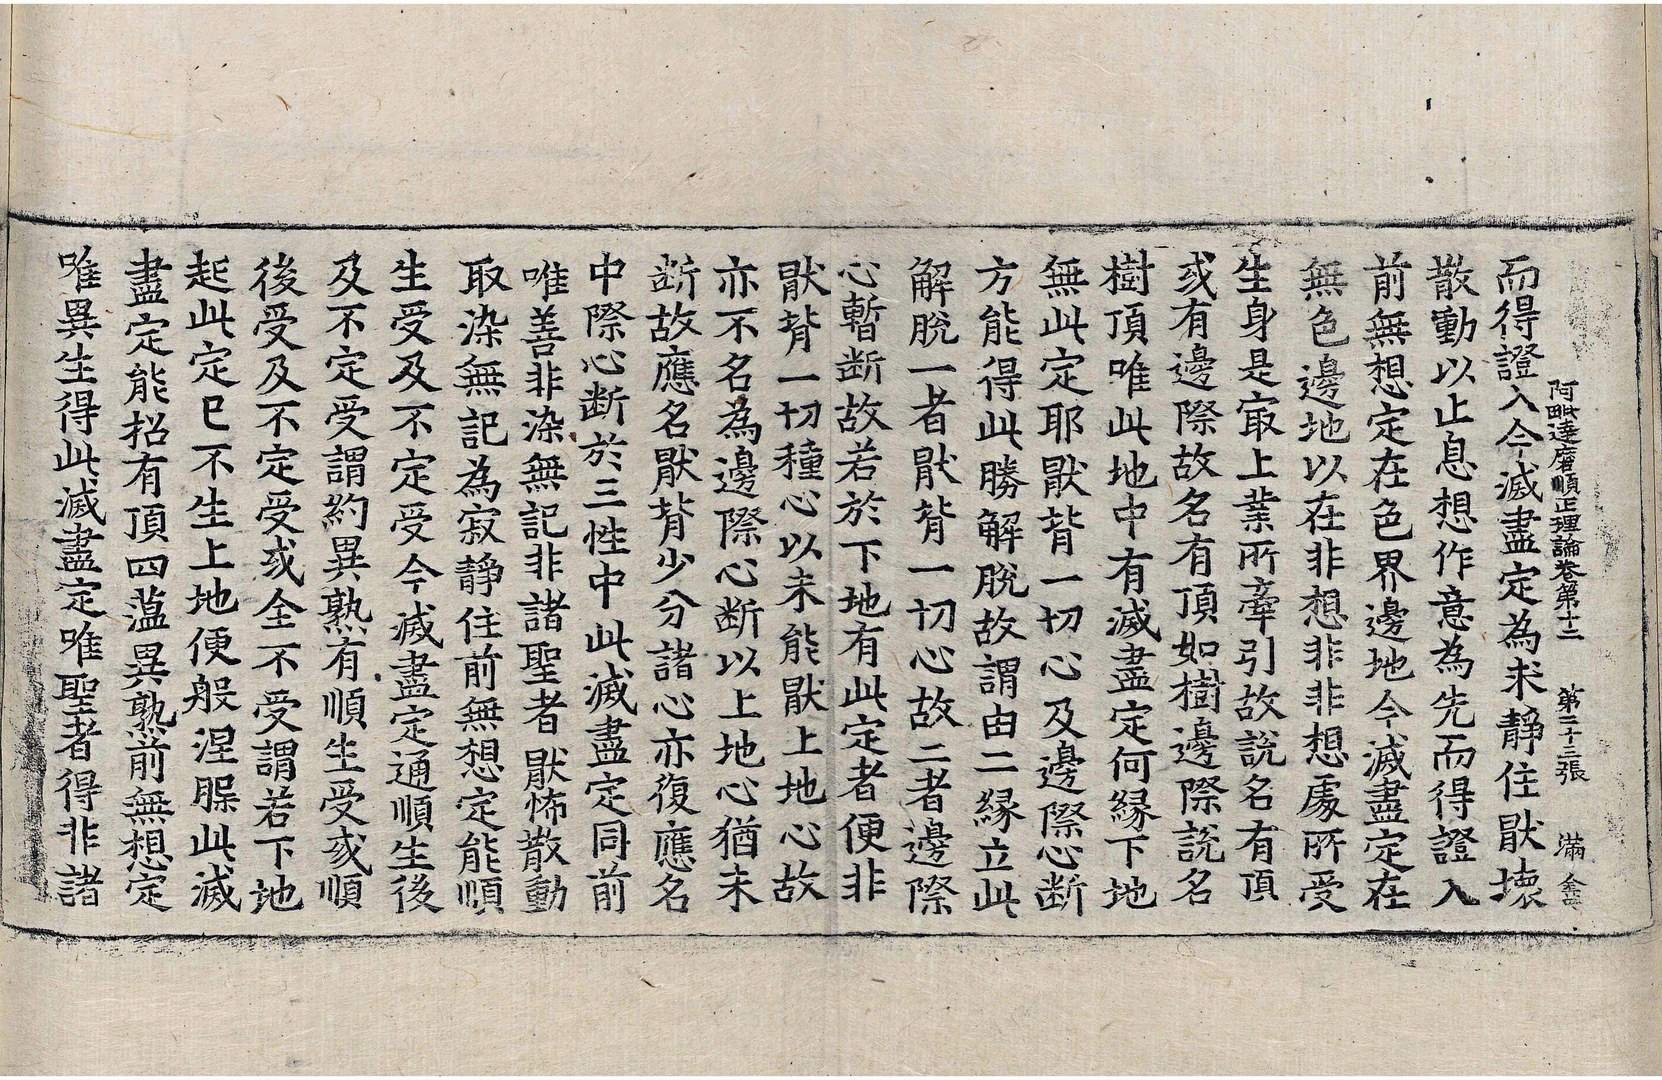 阿毗達磨順正理論卷第十二 第二十三張 滿
而得證入今滅盡定為求靜住猒壞
散動以止息想作意為先而得證入
前無想定在色界邊地今滅盡定在
無色邊地以在非想非非想處所受
生身是㝡上業所牽引故說名有頂
或有邊際故名有頂如樹邊際說名
樹頂唯此地中有滅盡定何緣下地
無此定耶猒背一切心及邊際心斷
方能得此勝解脫故謂由二緣立此
解脫一者猒背一切心故二者邊際
心暫斷故若於下地有此定者便非
猒背一切種心以未能猒上地心故
亦不名為邊際心斷以上地心猶未
斷故應名猒背少分諸心亦復應名
中際心斷於三性中此滅盡定同前
唯善非染無記非諸聖者猒怖散動
取染無記為寂靜住前無想定能順
生受及不定受今滅盡定通順生後
及不定受謂約異熟有順生受或順
後受及不定受或全不受謂若下地
起此定已不生上地便般涅槃此滅
盡定能招有頂四蘊異熟前無想定
唯異生得此滅盡定唯聖者得非諸